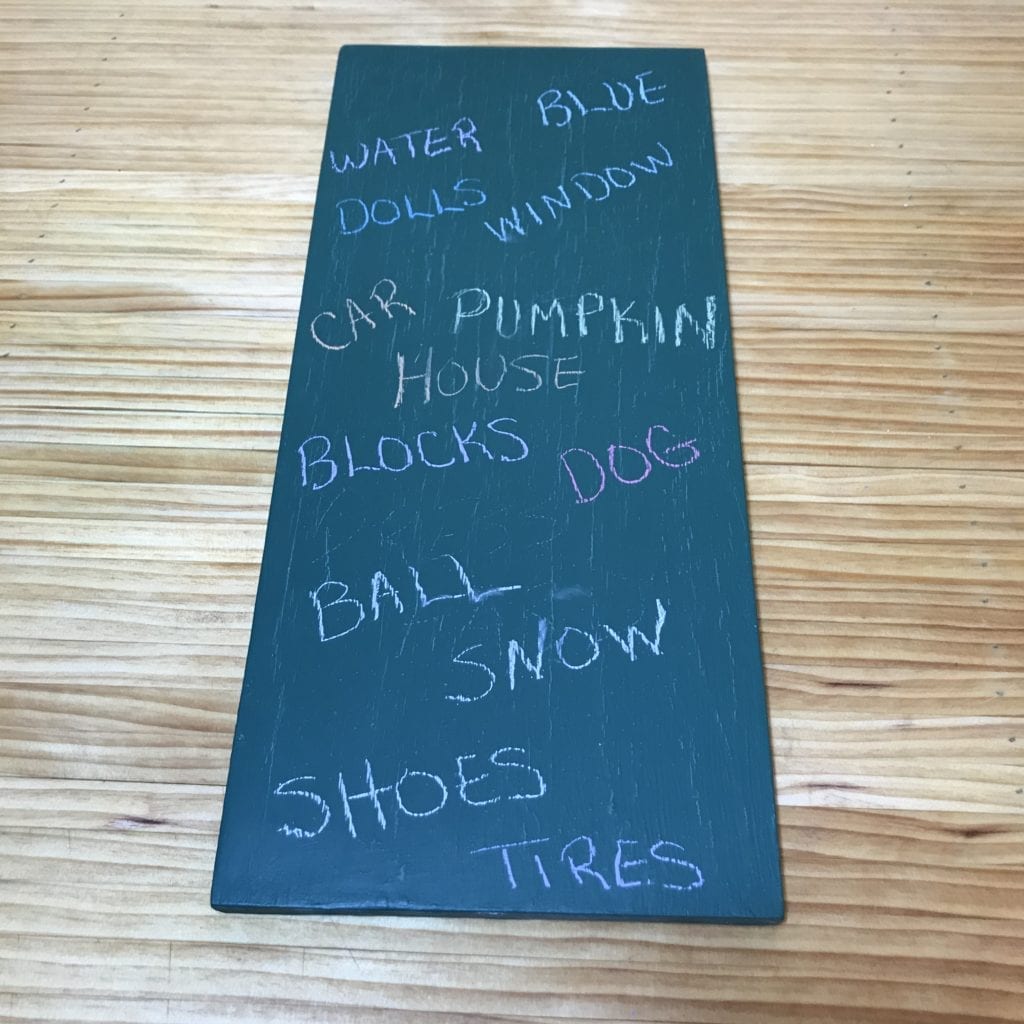 BLUE
WATER
DOLLS WINDOW
CAR PUMPKIN
HOUSE
BLOCKS DOG
BALL
SNOW
SHOES
TIRES